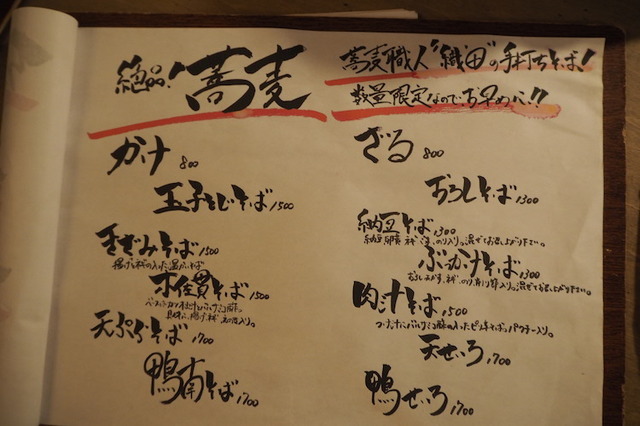 絶品!蕎麦
蕎麦職人"織田"の手打ちそば!
数量限定なのでお早めに!!
かけ 800
玉子とじそば 1500
きざみそば 1500
揚げと ネギの入った温かいそば
木佐貫そば 1500
天ぷらそば 1700
鴨南そば 1700
ざる 800
おろしそば 1300
納豆そば 1300
ぶっかけそば 1300
肉汁そば 1500
天せいろ 1700
鴨せいろ 1700